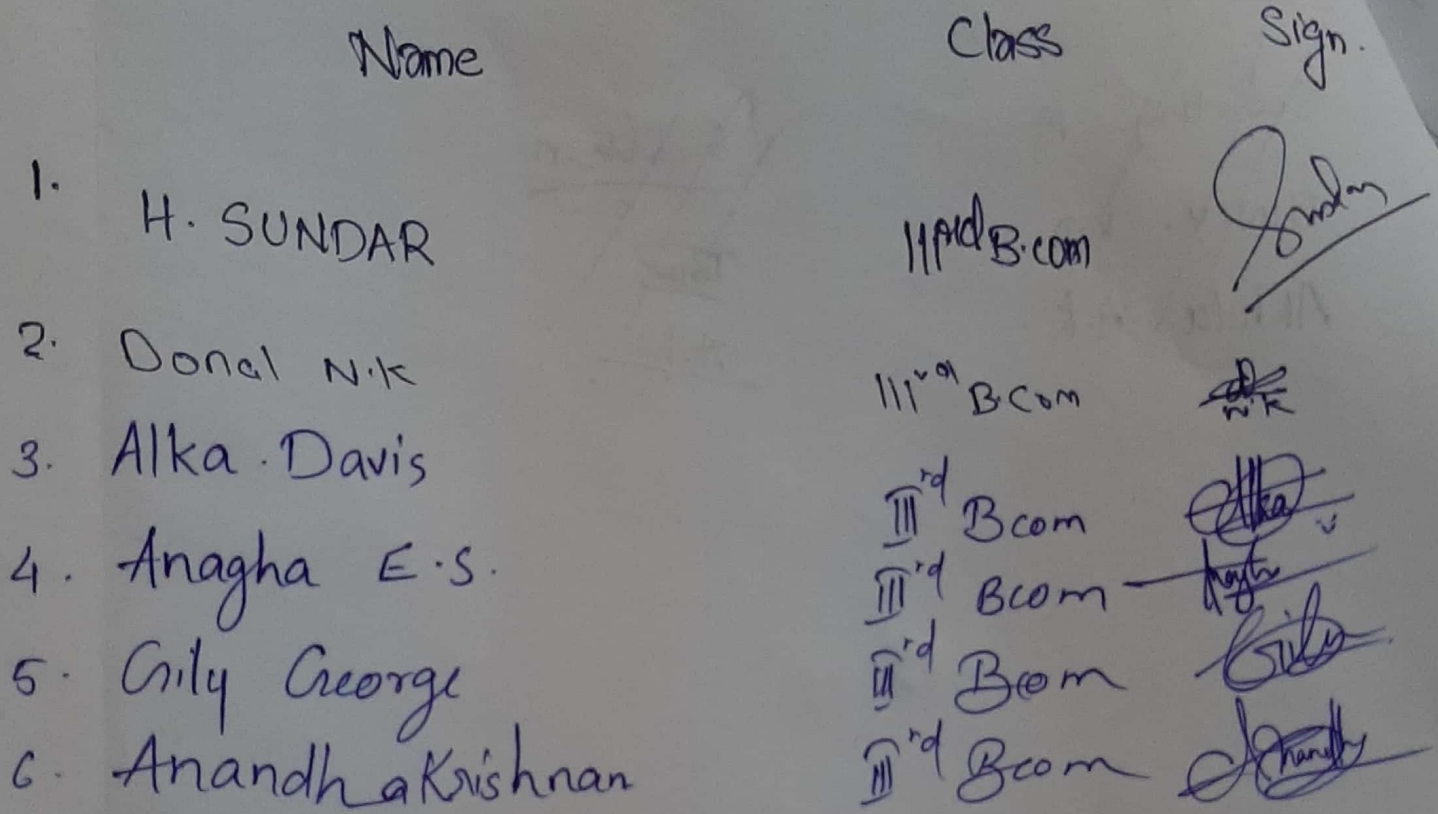 Name Class Sign.
1. H. SUNDAR IIIrd B.com Sundar
2. Donal N.K IIIrd B.Com N.K
3. Alka. Davis IIIrd Bcom Alka
4. Anagha E.S. IIIrd Bcom
5. Gily George IIIrd Bcom Gily
6. Anandhakrishnan IIIrd Bcom